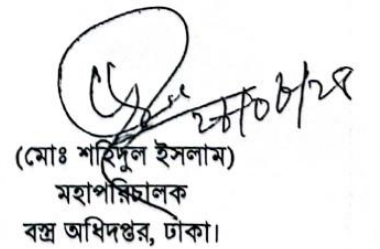 (মোঃ শহিদুল ইসলাম)
মহাপরিচালক
বস্ত্র অধিদপ্তর, ঢাকা।